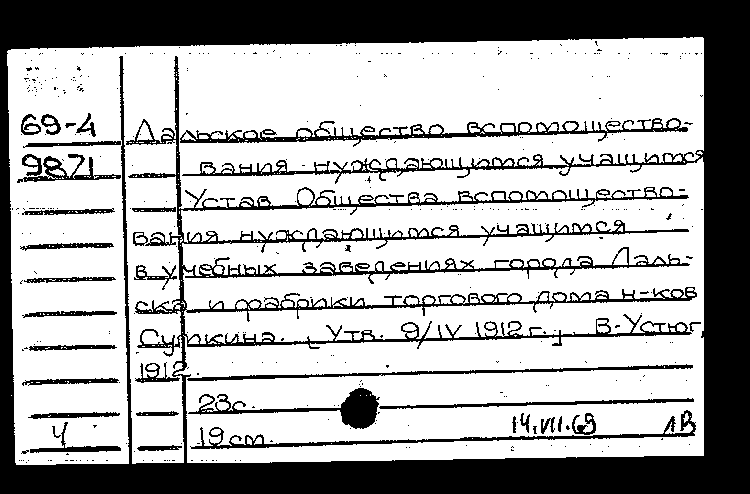 69-4 Лальское общество вспомощество-
9871 вания нуждающимся учащимся
Устав Общества вспомощество-
вания нуждающимся учащимся
в учебных заведениях города Лаль-
ска и фабрики торгового дома н-ков
Сумкина. [Утв. 9/IV 1912 г.]. В-Устюг,
1912.
23с.
4 19 см. 14.VII.69 ЛВ